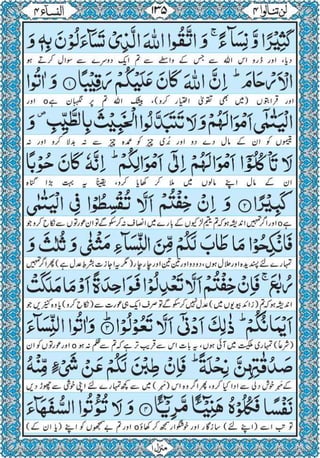 لن تنالوا ۴ ۱۳۵ النسآء ۴
كَثِيْرًا وَّ نِسَآءً ۚ وَ اتَّقُوا اللّٰهَ الَّذِيْ تَسَآءَلُوْنَ بِهٖ وَ
دیا، اور ڈرو اس اللہ سے جس کے واسطے سے تم ایک دوسرے سے سوال کرتے ہو
الْاَرْحَامَ ؕ اِنَّ اللّٰهَ كَانَ عَلَيْكُمْ رَقِيْبًا ﴿۱﴾ وَ اٰتُوا
اور قرابتوں (میں بھی تقویٰ اختیار کرو)، بیشک اللہ تم پر نگہبان ہے o اور
الْيَتٰمٰۤى اَمْوَالَهُمْ وَ لَا تَتَبَدَّلُوا الْخَبِيْثَ بِالطَّيِّبِ ۪ وَ
یتیموں کو ان کے مال دے دو اور بُری چیز کو عمدہ چیز سے نہ بدلا کرو اور نہ
لَا تَاْكُلُوْۤا اَمْوَالَهُمْ اِلٰۤى اَمْوَالِكُمْ ؕ اِنَّهٗ كَانَ حُوْبًا
ان کے مال اپنے مالوں میں ملا کر کھایا کرو، یقیناً یہ بہت بڑا گناہ
كَبِيْرًا ﴿۲﴾ وَ اِنْ خِفْتُمْ اَلَّا تُقْسِطُوْا فِي الْيَتٰمٰى
ہے o اور اگر تمہیں اندیشہ ہو کہ تم یتیم لڑکیوں کے بارے میں انصاف نہ کر سکو گے تو ان عورتوں سے نکاح کرو جو
فَانْكِحُوْا مَا طَابَ لَكُمْ مِّنَ النِّسَآءِ مَثْنٰى وَ ثُلٰثَ وَ
تمہارے لئے پسندیدہ اور حلال ہوں، دو دو اور تین تین اور چار چار (مگر یہ اجازت بشرطِ عدل ہے) پھر اگر تمہیں
رُبٰعَ ۚ فَاِنْ خِفْتُمْ اَلَّا تَعْدِلُوْا فَوَاحِدَةً اَوْ مَا مَلَكَتْ
اندیشہ ہو کہ تم (زائد بیویوں میں) عدل نہیں کر سکو گے تو صرف ایک ہی عورت سے (نکاح کرو) یا وہ کنیزیں جو
اَيْمَانُكُمْ ؕ ذٰلِكَ اَدْنٰۤى اَلَّا تَعُوْلُوْا ﴿۳﴾ وَ اٰتُوا النِّسَآءَ
(شرعاً) تمہاری ملکیت میں آئی ہوں، یہ بات اس سے قریب تر ہے کہ تم سے ظلم نہ ہو o اور عورتوں کو ان
صَدُقٰتِهِنَّ نِحْلَةً ؕ فَاِنْ طِبْنَ لَكُمْ عَنْ شَيْءٍ مِّنْهُ
کے مَہر خوش دلی سے ادا کیا کرو، پھر اگر وہ اس (مَہر) میں سے کچھ تمہارے لئے اپنی خوشی سے چھوڑ دیں
نَفْسًا فَكُلُوْهُ هَنِيْٓـئًا مَّرِيْٓـئًا ﴿۴﴾ وَ لَا تُؤْتُوا السُّفَهَآءَ
تو تب اسے (اپنے لئے) سازگار اور خوشگوار سمجھ کر کھاؤ o اور تم بے سمجھوں کو اپنے (یا ان کے)
منزل